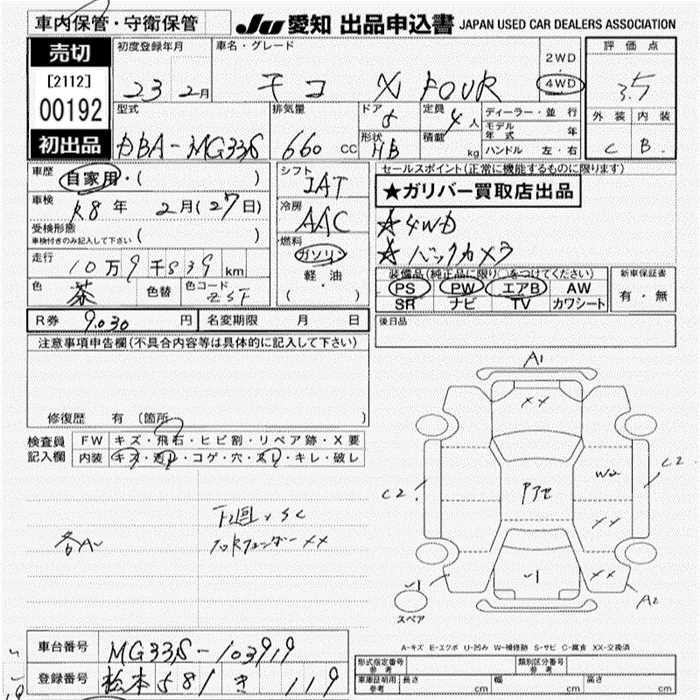 車内保管・守衛保管
JU 愛知 出品申込書 JAPAN USED CAR DEALERS ASSOCIATION
売切
[2112]
00192
初出品
初度登録年月
23 2月
車名・グレード
モコ X FOUR
2WD
4WD
評価点
3.5
型式
DBA-MG33S
排気量
660 cc
ドア
5
形状
HB
定員
4人
積載
kg
ディーラー・並行
モデル年式 年
ハンドル 左・右
外装 内装
C B
車歴
自家用・( )
車検
R8年 2月(27日)
受検形態
車検付きのみ記入して下さい ( )
走行
10万9千839km
色
茶
色替
色コード
ZSF
シフト
IAT
冷房
AAC
燃料
ガソリン
軽・油
( )
セールスポイント(正常に機能するものに限ります)
★ガリバー買取店出品
☆4WD
☆バックカメラ
装備品(純正品に限り○をつけてください)
PS PW エアB AW
SR ナビ TV カワシート
新車保証書
有・無
R券 9.030 円
名変期限 月 日
後日品
注意事項申告欄(不具合内容等は具体的に記入して下さい)
修復歴 有 (箇所 )
検査員記入欄
FW キズ・飛石・ヒビ割・リペア跡・X要
内装 キズ・汚レ・コゲ・穴・スレ・キレ・破レ
各A
下廻サC
フロントフェンダーXX
A1
XX
C2
アセ
W2
C2
XX
XX
A2
スペア
A-キズ E-エクボ U-凹み W-補修跡 S-サビ C-腐食 XX-交換済
車台番号 MG33S-103919
登録番号 松本581 き 119
型式指定番号 参考
類別区分番号 参考
車庫証明用参考 長さ cm 幅 cm 高さ cm